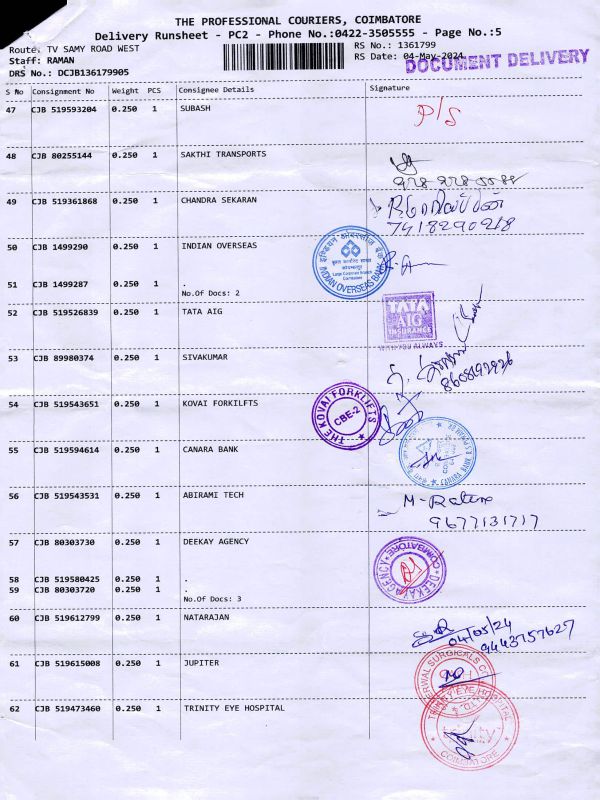 THE PROFESSIONAL COURIERS, COIMBATORE
Delivery Runsheet - PC2 - Phone No.:0422-3505555 - Page No.:5
Route: TV SAMY ROAD WEST
RS No.: 1361799
Staff: RAMAN
RS Date: 04-May-2024
DOCUMENT DELIVERY
DRS No.: DCJB136179905
S No Consignment No Weight PCS Consignee Details Signature
47 CJB 519593204 0.250 1 SUBASH P/S
48 CJB 80255144 0.250 1 SAKTHI TRANSPORTS
49 CJB 519361868 0.250 1 CHANDRA SEKARAN
7418290218
50 CJB 1499290 0.250 1 INDIAN OVERSEAS
INDIAN OVERSEAS BANK
51 CJB 1499287 0.250 1 .
No.Of Docs: 2
52 CJB 519526839 0.250 1 TATA AIG
TATA
AIG
INSURANCE
WITH YOU ALWAYS
53 CJB 89980374 0.250 1 SIVAKUMAR
54 CJB 519543651 0.250 1 KOVAI FORKILFTS
THE KOVAI FORKLIFTS
CBE-2
55 CJB 519594614 0.250 1 CANARA BANK
CANARA BANK
56 CJB 519543531 0.250 1 ABIRAMI TECH
9677131717
57 CJB 80303730 0.250 1 DEEKAY AGENCY
DEEKAY AGENCY
COIMBATORE
58 CJB 519580425 0.250 1 .
59 CJB 80303720 0.250 1 .
No.Of Docs: 3
60 CJB 519612799 0.250 1 NATARAJAN
04/05/24
9443757627
61 CJB 519615008 0.250 1 JUPITER
62 CJB 519473460 0.250 1 TRINITY EYE HOSPITAL
TRINITY EYE HOSPITAL
COIMBATORE